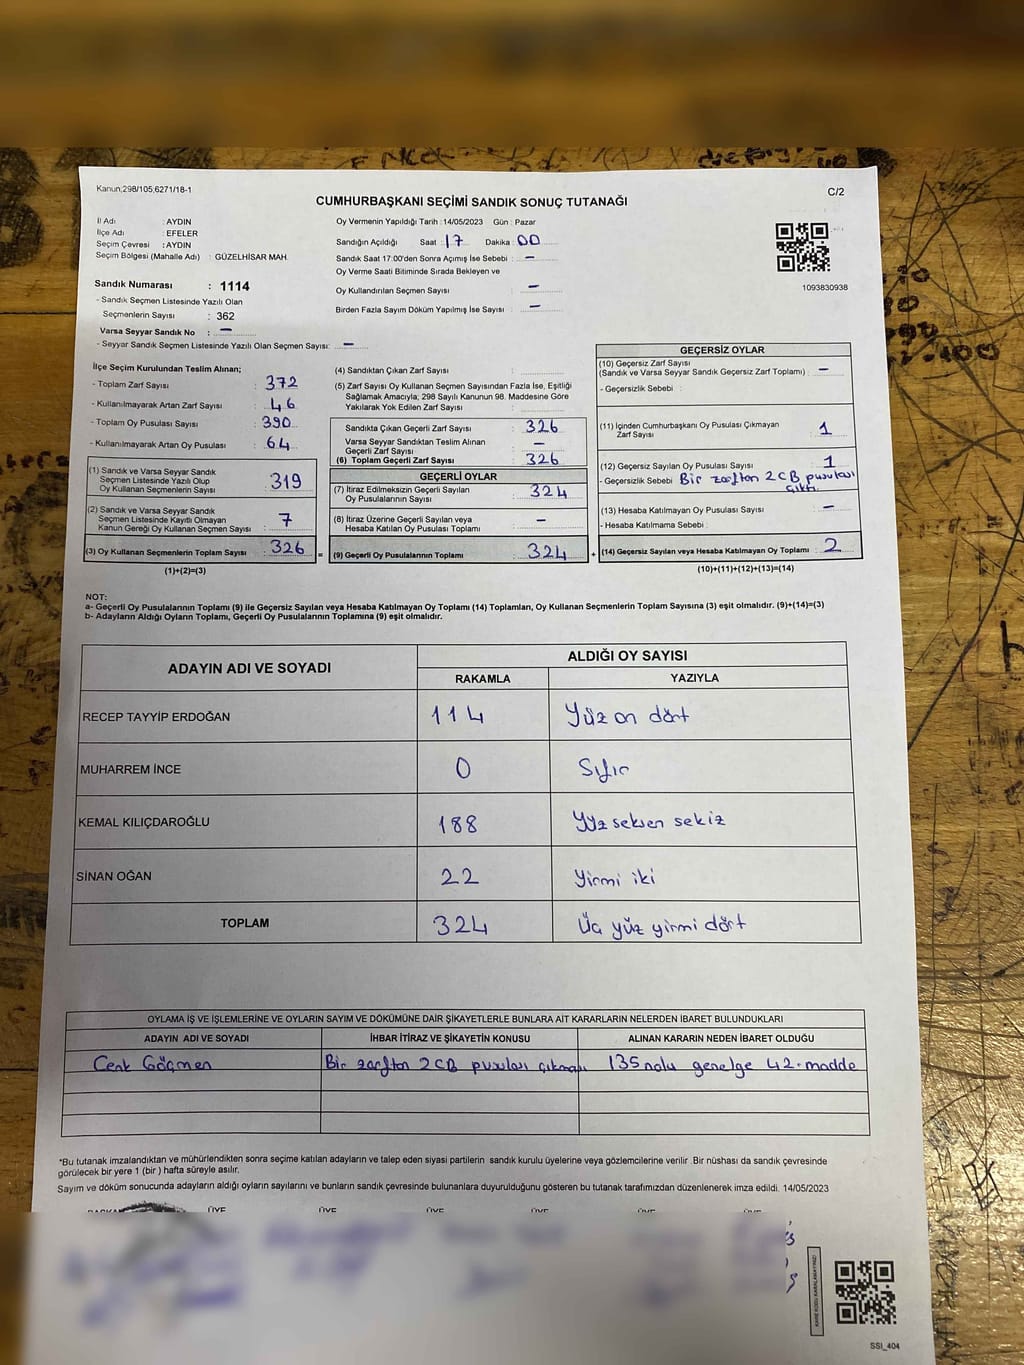 Kanun;298/105,6271/18-1
C/2
CUMHURBAŞKANI SEÇİMİ SANDIK SONUÇ TUTANAĞI
İl Adı : AYDIN
İlçe Adı : EFELER
Seçim Çevresi : AYDIN
Seçim Bölgesi (Mahalle Adı) : GÜZELHİSAR MAH.
Oy Vermenin Yapıldığı Tarih : 14/05/2023 Gün : Pazar
Sandığın Açıldığı Saat : 17 Dakika : 00
Sandık Saat 17:00'den Sonra Açımış İse Sebebi : –
Oy Verme Saati Bitiminde Sırada Bekleyen ve
Oy Kullandırılan Seçmen Sayısı : –
Birden Fazla Sayım Döküm Yapılmış İse Sayısı : –
1093830938
Sandık Numarası : 1114
- Sandık Seçmen Listesinde Yazılı Olan
Seçmenlerin Sayısı : 362
Varsa Seyyar Sandık No : –
- Seyyar Sandık Seçmen Listesinde Yazılı Olan Seçmen Sayısı: –
İlçe Seçim Kurulundan Teslim Alınan;
- Toplam Zarf Sayısı : 372
- Kullanılmayarak Artan Zarf Sayısı : 46
- Toplam Oy Pusulası Sayısı : 390
- Kullanılmayarak Artan Oy Pusulası : 64
(1) Sandık ve Varsa Seyyar Sandık
Seçmen Listesinde Yazılı Olup
Oy Kullanan Seçmenlerin Sayısı : 319
(2) Sandık ve Varsa Seyyar Sandık
Seçmen Listesinde Kayıtlı Olmayan
Kanun Gereği Oy Kullanan Seçmen Sayısı : 7
(3) Oy Kullanan Seçmenlerin Toplam Sayısı : 326 =
(1)+(2)=(3)
(4) Sandıktan Çıkan Zarf Sayısı :
(5) Zarf Sayısı Oy Kullanan Seçmen Sayısından Fazla İse, Eşitliği
Sağlamak Amacıyla; 298 Sayılı Kanunun 98. Maddesine Göre
Yakılarak Yok Edilen Zarf Sayısı :
Sandıkta Çıkan Geçerli Zarf Sayısı : 326
Varsa Seyyar Sandıktan Teslim Alınan
Geçerli Zarf Sayısı : –
(6) Toplam Geçerli Zarf Sayısı : 326
GEÇERLİ OYLAR
(7) İtiraz Edilmeksizin Geçerli Sayılan
Oy Pusulalarının Sayısı : 324
(8) İtiraz Üzerine Geçerli Sayılan veya
Hesaba Katılan Oy Pusulası Toplamı : –
(9) Geçerli Oy Pusulalarının Toplamı : 324 +
GEÇERSİZ OYLAR
(10) Geçersiz Zarf Sayısı
(Sandık ve Varsa Seyyar Sandık Geçersiz Zarf Toplamı) : –
- Geçersizlik Sebebi :
(11) İçinden Cumhurbaşkanı Oy Pusulası Çıkmayan
Zarf Sayısı : 1
(12) Geçersiz Sayılan Oy Pusulası Sayısı : 1
- Geçersizlik Sebebi Bir zarftan 2 CB pusulası
çıktı
(13) Hesaba Katılmayan Oy Pusulası Sayısı : –
- Hesaba Katılmama Sebebi :
(14) Geçersiz Sayılan veya Hesaba Katılmayan Oy Toplamı : 2
(10)+(11)+(12)+(13)=(14)
NOT:
a- Geçerli Oy Pusulalarının Toplamı (9) ile Geçersiz Sayılan veya Hesaba Katılmayan Oy Toplamı (14) Toplamları, Oy Kullanan Seçmenlerin Toplam Sayısına (3) eşit olmalıdır. (9)+(14)=(3)
b- Adayların Aldığı Oyların Toplamı, Geçerli Oy Pusulalarının Toplamına (9) eşit olmalıdır.
ADAYIN ADI VE SOYADI
ALDIĞI OY SAYISI
RAKAMLA YAZIYLA
RECEP TAYYİP ERDOĞAN 114 Yüz on dört
MUHARREM İNCE 0 Sıfır
KEMAL KILIÇDAROĞLU 188 Yüz seksen sekiz
SİNAN OĞAN 22 Yirmi iki
TOPLAM 324 Üç yüz yirmi dört
OYLAMA İŞ VE İŞLEMLERİNE VE OYLARIN SAYIM VE DÖKÜMÜNE DAİR ŞİKAYETLERLE BUNLARA AİT KARARLARIN NELERDEN İBARET BULUNDUKLARI
ADAYIN ADI VE SOYADI İHBAR İTİRAZ VE ŞİKAYETİN KONUSU ALINAN KARARIN NEDEN İBARET OLDUĞU
Cenk Göçmen Bir zarftan 2 CB pusulası çıkması 135 nolu genelge 42. madde
*Bu tutanak imzalandıktan ve mühürlendikten sonra seçime katılan adayların ve talep eden siyasi partilerin sandık kurulu üyelerine veya gözlemcilerine verilir .Bir nüshası da sandık çevresinde
görülecek bir yere 1 (bir ) hafta süreyle asılır.
Sayım ve döküm sonucunda adayların aldığı oyların sayılarını ve bunların sandık çevresinde bulunanlara duyurulduğunu gösteren bu tutanak tarafımızdan düzenlenerek imza edildi. 14/05/2023
BAŞKAN ÜYE ÜYE ÜYE ÜYE ÜYE ÜYE
SSI_404